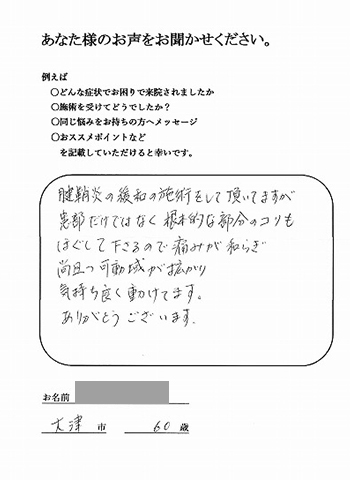 あなた様のお声をお聞かせください。
例えば
○どんな症状でお困りで来院されましたか
○施術を受けてどうでしたか？
○同じ悩みをお持ちの方へメッセージ
○おススメポイントなど
を記載していただけると幸いです。
腱鞘炎の緩和の施術をして頂いてますが
患部だけではなく根本的な部分のコリも
ほぐして下さるので痛みが和らぎ
尚且つ可動域が拡がり
気持ち良く動けてます。
ありがとうございます.
お名前
大津 市 60 歳